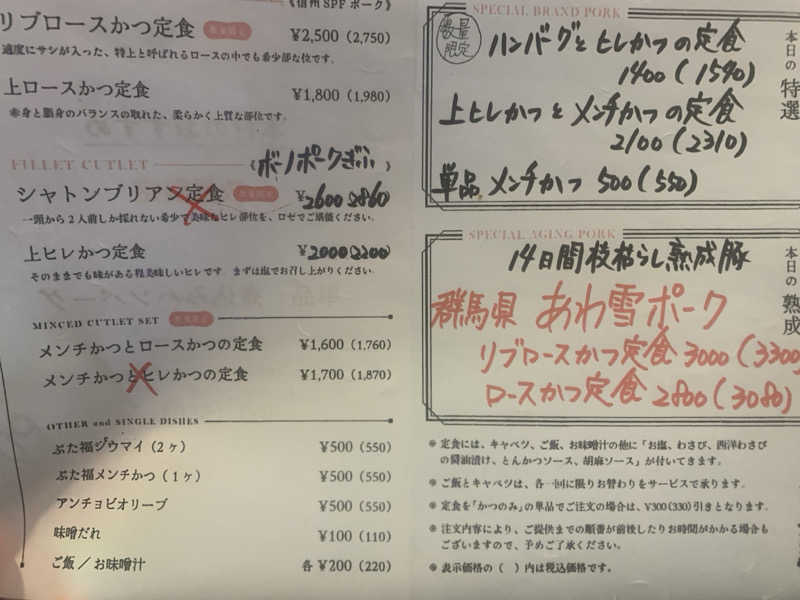 《信州SPFポーク》
リブロースかつ定食 数量限定 ¥2,500 (2,750)
適度にサシが入った、特上と呼ばれるロースの中でも希少部な位です。
上ロースかつ定食 ¥1,800 (1,980)
赤身と脂身のバランスの取れた、柔らかく上質な部位です。
FILLET CUTLET 《ボーノポークぎふ》
シャトンブリアン定食 数量限定 ¥2600 2860
一頭から2人前しか採れない希少で美味なヒレ部位を、ロゼでご堪能ください。
上ヒレかつ定食 ¥2000(2200)
そのままでも味がある程美味しいヒレです。まずは塩でお召し上がりください。
MINCED CUTLET SET 数量限定
メンチかつとロースかつの定食 ¥1,600 (1,760)
メンチかつとヒレかつの定食 ¥1,700 (1,870)
OTHER and SINGLE DISHES
ぶた福ジウマイ(2ヶ) ¥500 (550)
ぶた福メンチかつ(1ヶ) ¥500 (550)
アンチョビオリーブ ¥500 (550)
味噌だれ ¥100 (110)
ご飯/お味噌汁 各 ¥200 (220)
SPECIAL BRAND PORK
本日の特選
数量限定
ハンバーグとヒレかつの定食
1400(1540)
上ヒレかつとメンチかつの定食
2100(2310)
単品 メンチかつ 500(550)
SPECIAL AGING PORK
本日の熟成
14日間枝枯らし熟成豚
群馬県 あわ雪ポーク
リブロースかつ定食 3000(3300
ロースかつ定食 2800(3080)
※定食には、キャベツ、ご飯、お味噌汁の他に「お塩、わさび、西洋わさび
の醤油漬け、とんかつソース、胡麻ソース」が付いてきます。
※ご飯とキャベツは、各一回に限りお替わりをサービスで承ります。
※定食を「かつのみ」の単品でご注文の場合は、¥300(330)引きとなります。
※注文内容により、ご提供までの順番が前後したりお時間がかかる場合も
ございますので、予めご了承ください。
※表示価格の( )内は税込価格です。